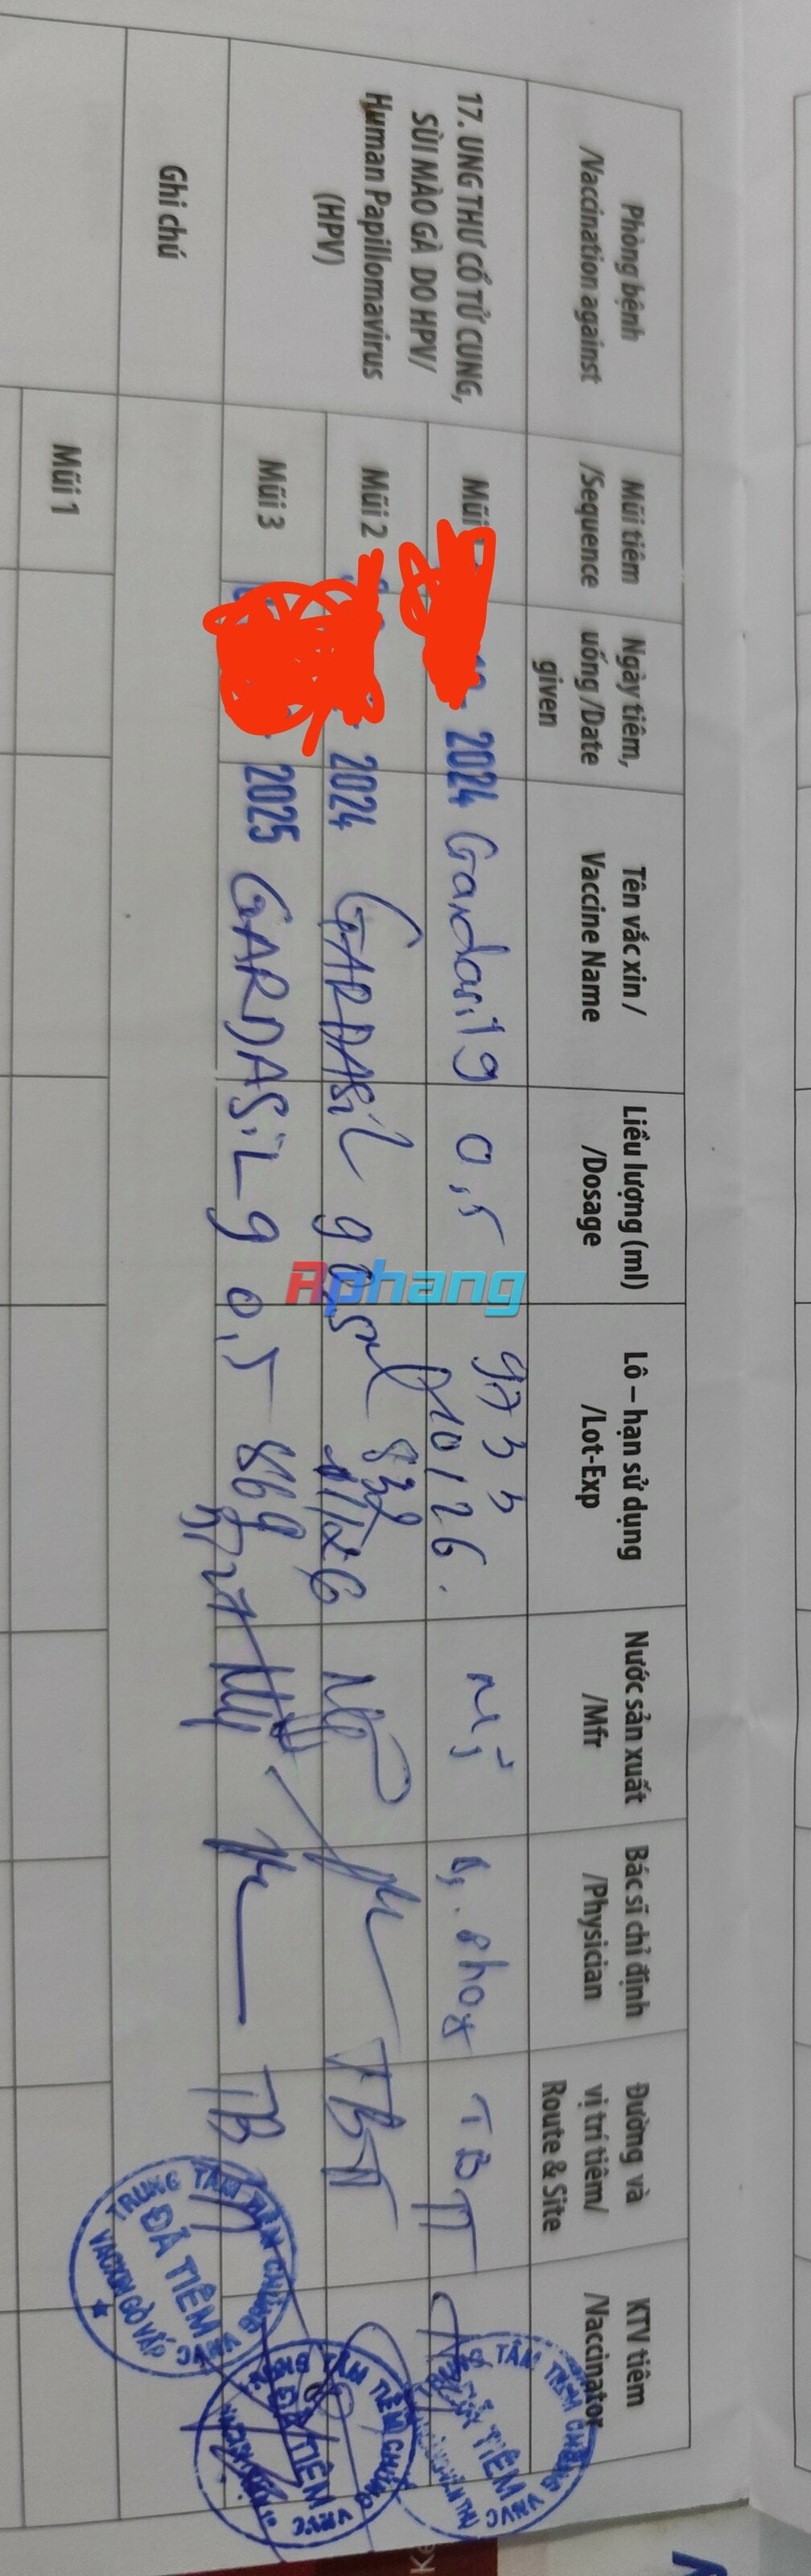 Phòng bệnh
/Vaccination against
Mũi tiêm
/Sequence
Ngày tiêm,
uống /Date
given
Tên vắc xin /
Vaccine Name
Liều lượng (ml)
/Dosage
Lô – hạn sử dụng
/Lot-Exp
Nước sản xuất
/Mfr
Bác sĩ chỉ định
/Physician
Đường và
vị trí tiêm/
Route & Site
KTV tiêm
/Vaccinator
17. UNG THƯ CỔ TỬ CUNG,
SÙI MÀO GÀ DO HPV/
Human Papillomavirus
(HPV)
Mũi
2024
Gardasil 9
0,5
10/26.
Mỹ
TBT
Mũi 2
2024
GARDASiL 9
832
Mỹ
TBT
Mũi 3
2025
GARDASiL 9
0,5
869
Mỹ
TB
TRUNG TÂM TIÊM CHỦNG VNVC
ĐÃ TIÊM
VACXIN GÒ VẤP
TÂM TIÊM CHỦNG VNVC
ĐÃ TIÊM
TÂM TIÊM CHỦNG VNVC
TIÊM
Ghi chú
Mũi 1
Rphang